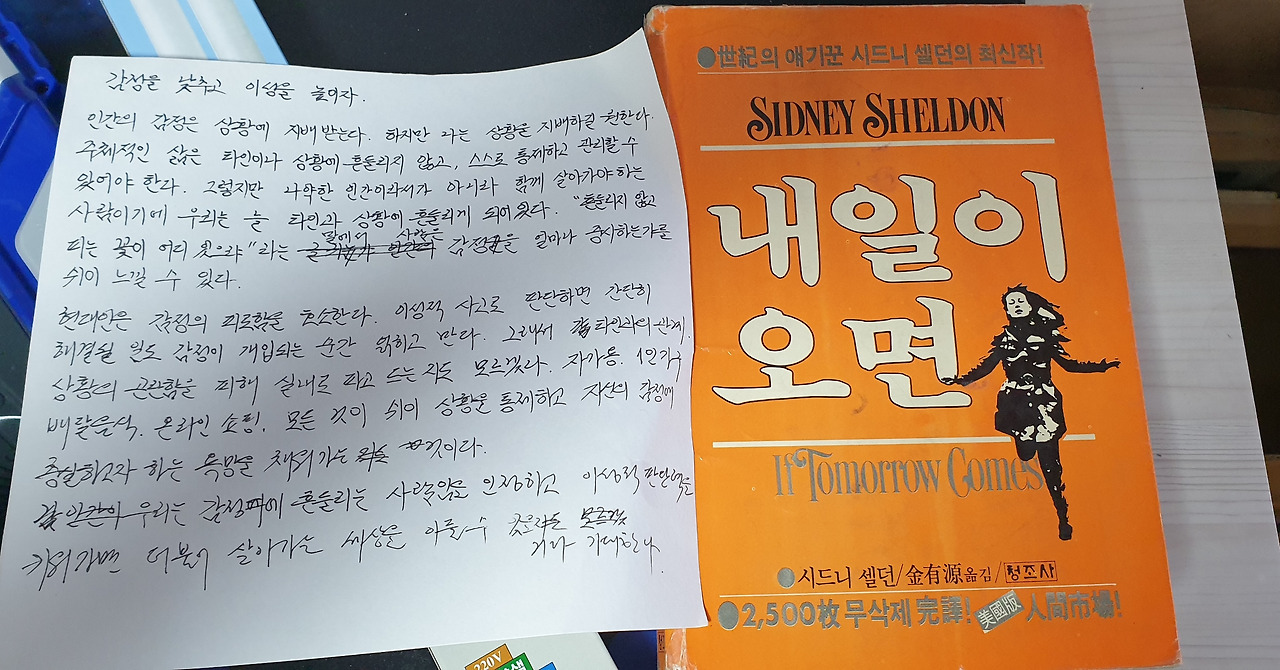 감정을 낮추고 이성을 높이자.
인간의 감정은 상황에 지배 받는다. 하지만 나는 상황을 지배하길 원한다.
주체적인 삶은 타인이나 상황에 흔들리지 않고, 스스로 통제하고 관리할 수
있어야 한다. 그렇지만 나약한 인간이라서가 아니라 함께 살아가야 하는
사람이기에 우리는 늘 타인과 상황에 흔들리게 되어있다. "흔들리지 않고
피는 꽃이 어디 있으랴"라는 말에서 사람은 감정을 얼마나 중시하는가를
쉬이 느낄 수 있다.
현대인은 감정의 피로함을 호소한다. 이성적 사고로 판단하면 간단히
해결될 일도 감정이 개입되는 순간 얽히고 만다. 그래서 타인과의 관계,
상황의 곤란함을 피해 실내로 파고 드는지도 모르겠다. 자가용, 1인가구
배달음식, 온라인 쇼핑, 모든 것이 쉬이 상황을 통제하고 자신의 감정에
충실하고자 하는 욕망을 채워가는 것이다.
우리는 감정에 흔들리는 사람임을 인정하고 이성적 판단력을
키워가면 더불어 살아가는 세상을 이룰 수
거라 기대한다.
●世紀의 얘기꾼 시드니 셀던의 최신작!
SIDNEY SHELDON
내일이
오면
If Tomorrow Comes
●시드니 셀던/金有源옮김/청조사
●2,500枚 무삭제 完譯! 美國版 人間市場!
220V